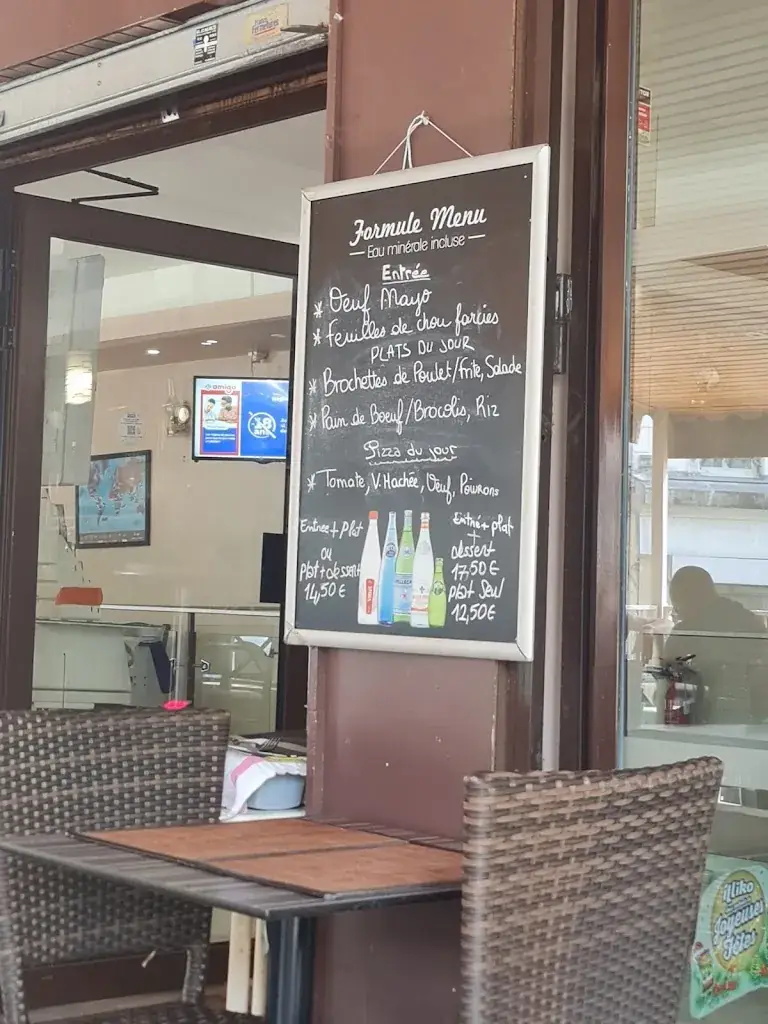 Formule Menu
Eau minérale incluse
Entrée
* Oeuf Mayo
* Feuilles de chou farcies
PLATS DU JOUR
* Brochettes de Poulet/frite, Salade
* Pain de Boeuf/Brocolis, Riz
Pizza du jour
* Tomate, V. Hachée, Oeuf, Poivrons
Entrée + plat
ou
Plat + dessert
14,50 €
Entrée + plat
+
dessert
17,50 €
plat seul
12,50 €
amigo
-18
ans
illiko
Joyeuses
Fêtes